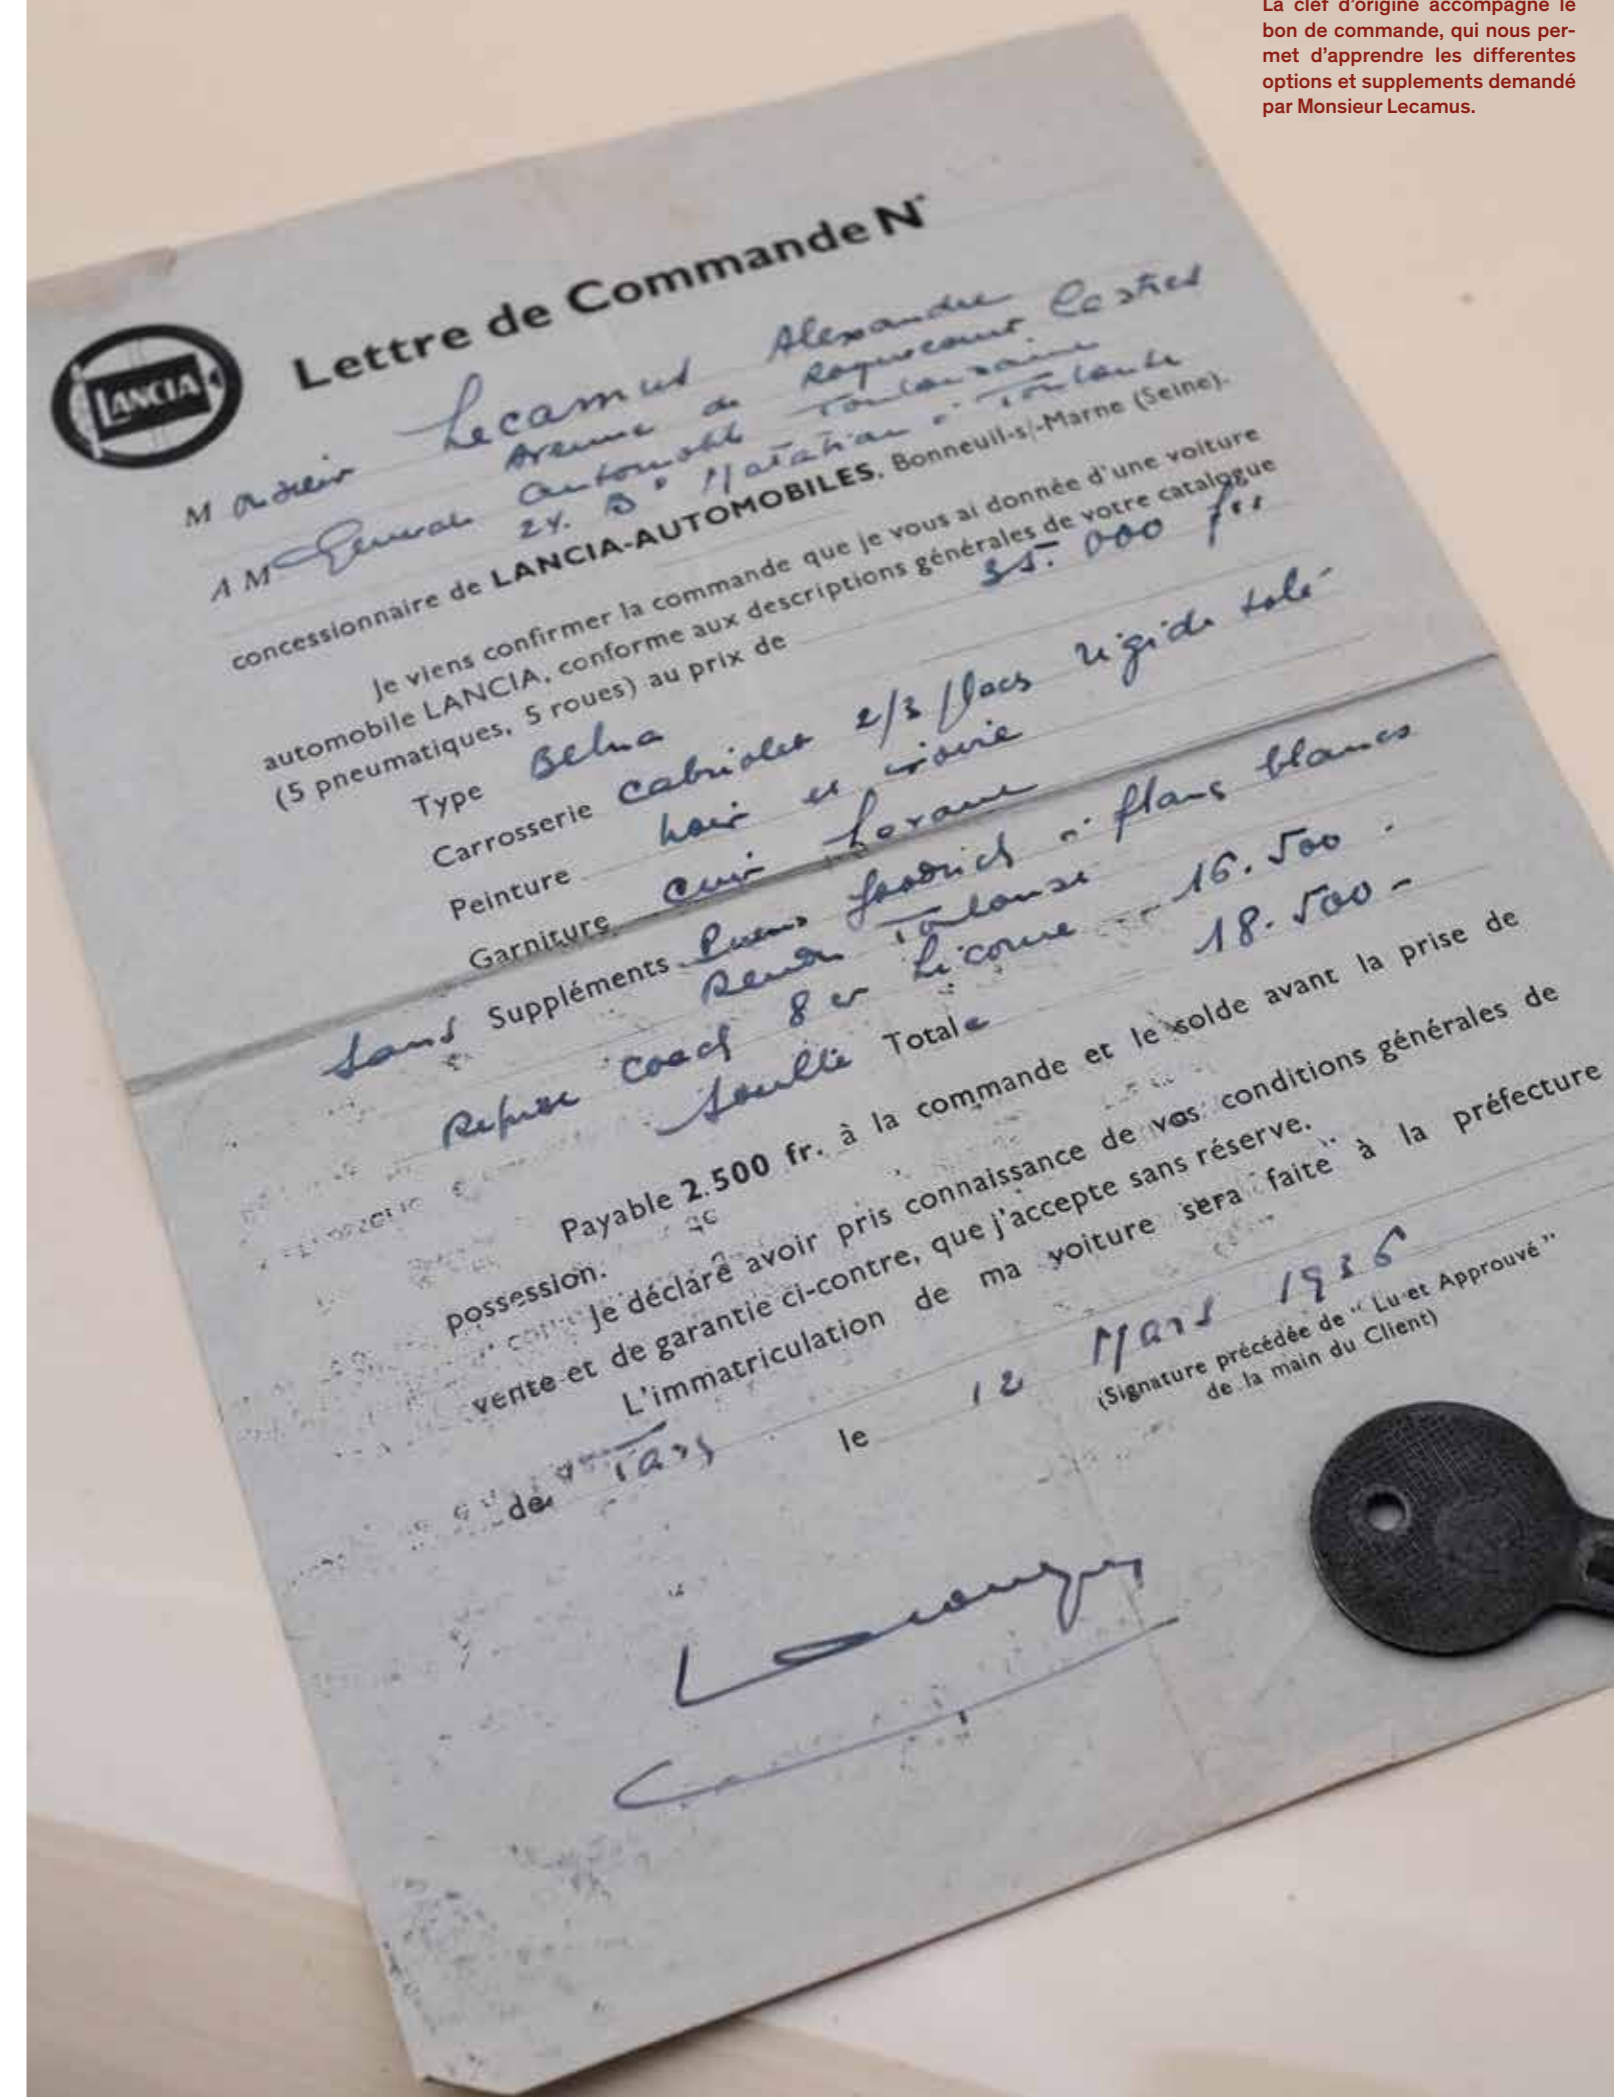 La clef d'origine accompagne le
bon de commande, qui nous per-
met d'apprendre les differentes
options et supplements demandé
par Monsieur Lecamus.
LANCIA
Lettre de Commande N°
Monsieur Lecamus Alexandre
Avenue de Roquecourt Castres
A M Générale Automobile Toulousaine
24. Bd Matabiau à Toulouse
concessionnaire de LANCIA-AUTOMOBILES, Bonneuil-s/-Marne (Seine).
Je viens confirmer la commande que je vous ai donnée d'une voiture
automobile LANCIA, conforme aux descriptions générales de votre catalogue
(5 pneumatiques, 5 roues) au prix de 35.000 frs
Type Belna
Carrosserie Cabriolet 2/3 places rigide tolé
Peinture noir et ivoire
Garniture cuir
Sans Suppléments Pneus Goodrich à flancs blancs
Rendu Toulouse
Reprise coach 8 cv Licorne 16.500
Soulte Totale 18.500
Payable 2.500 fr. à la commande et le solde avant la prise de
possession.
Je déclare avoir pris connaissance de vos conditions générales de
vente et de garantie ci-contre, que j'accepte sans réserve.
L'immatriculation de ma voiture sera faite à la préfecture
de Tarn le 12 Mars 1936
(Signature précédée de "Lu et Approuvé"
de la main du Client)